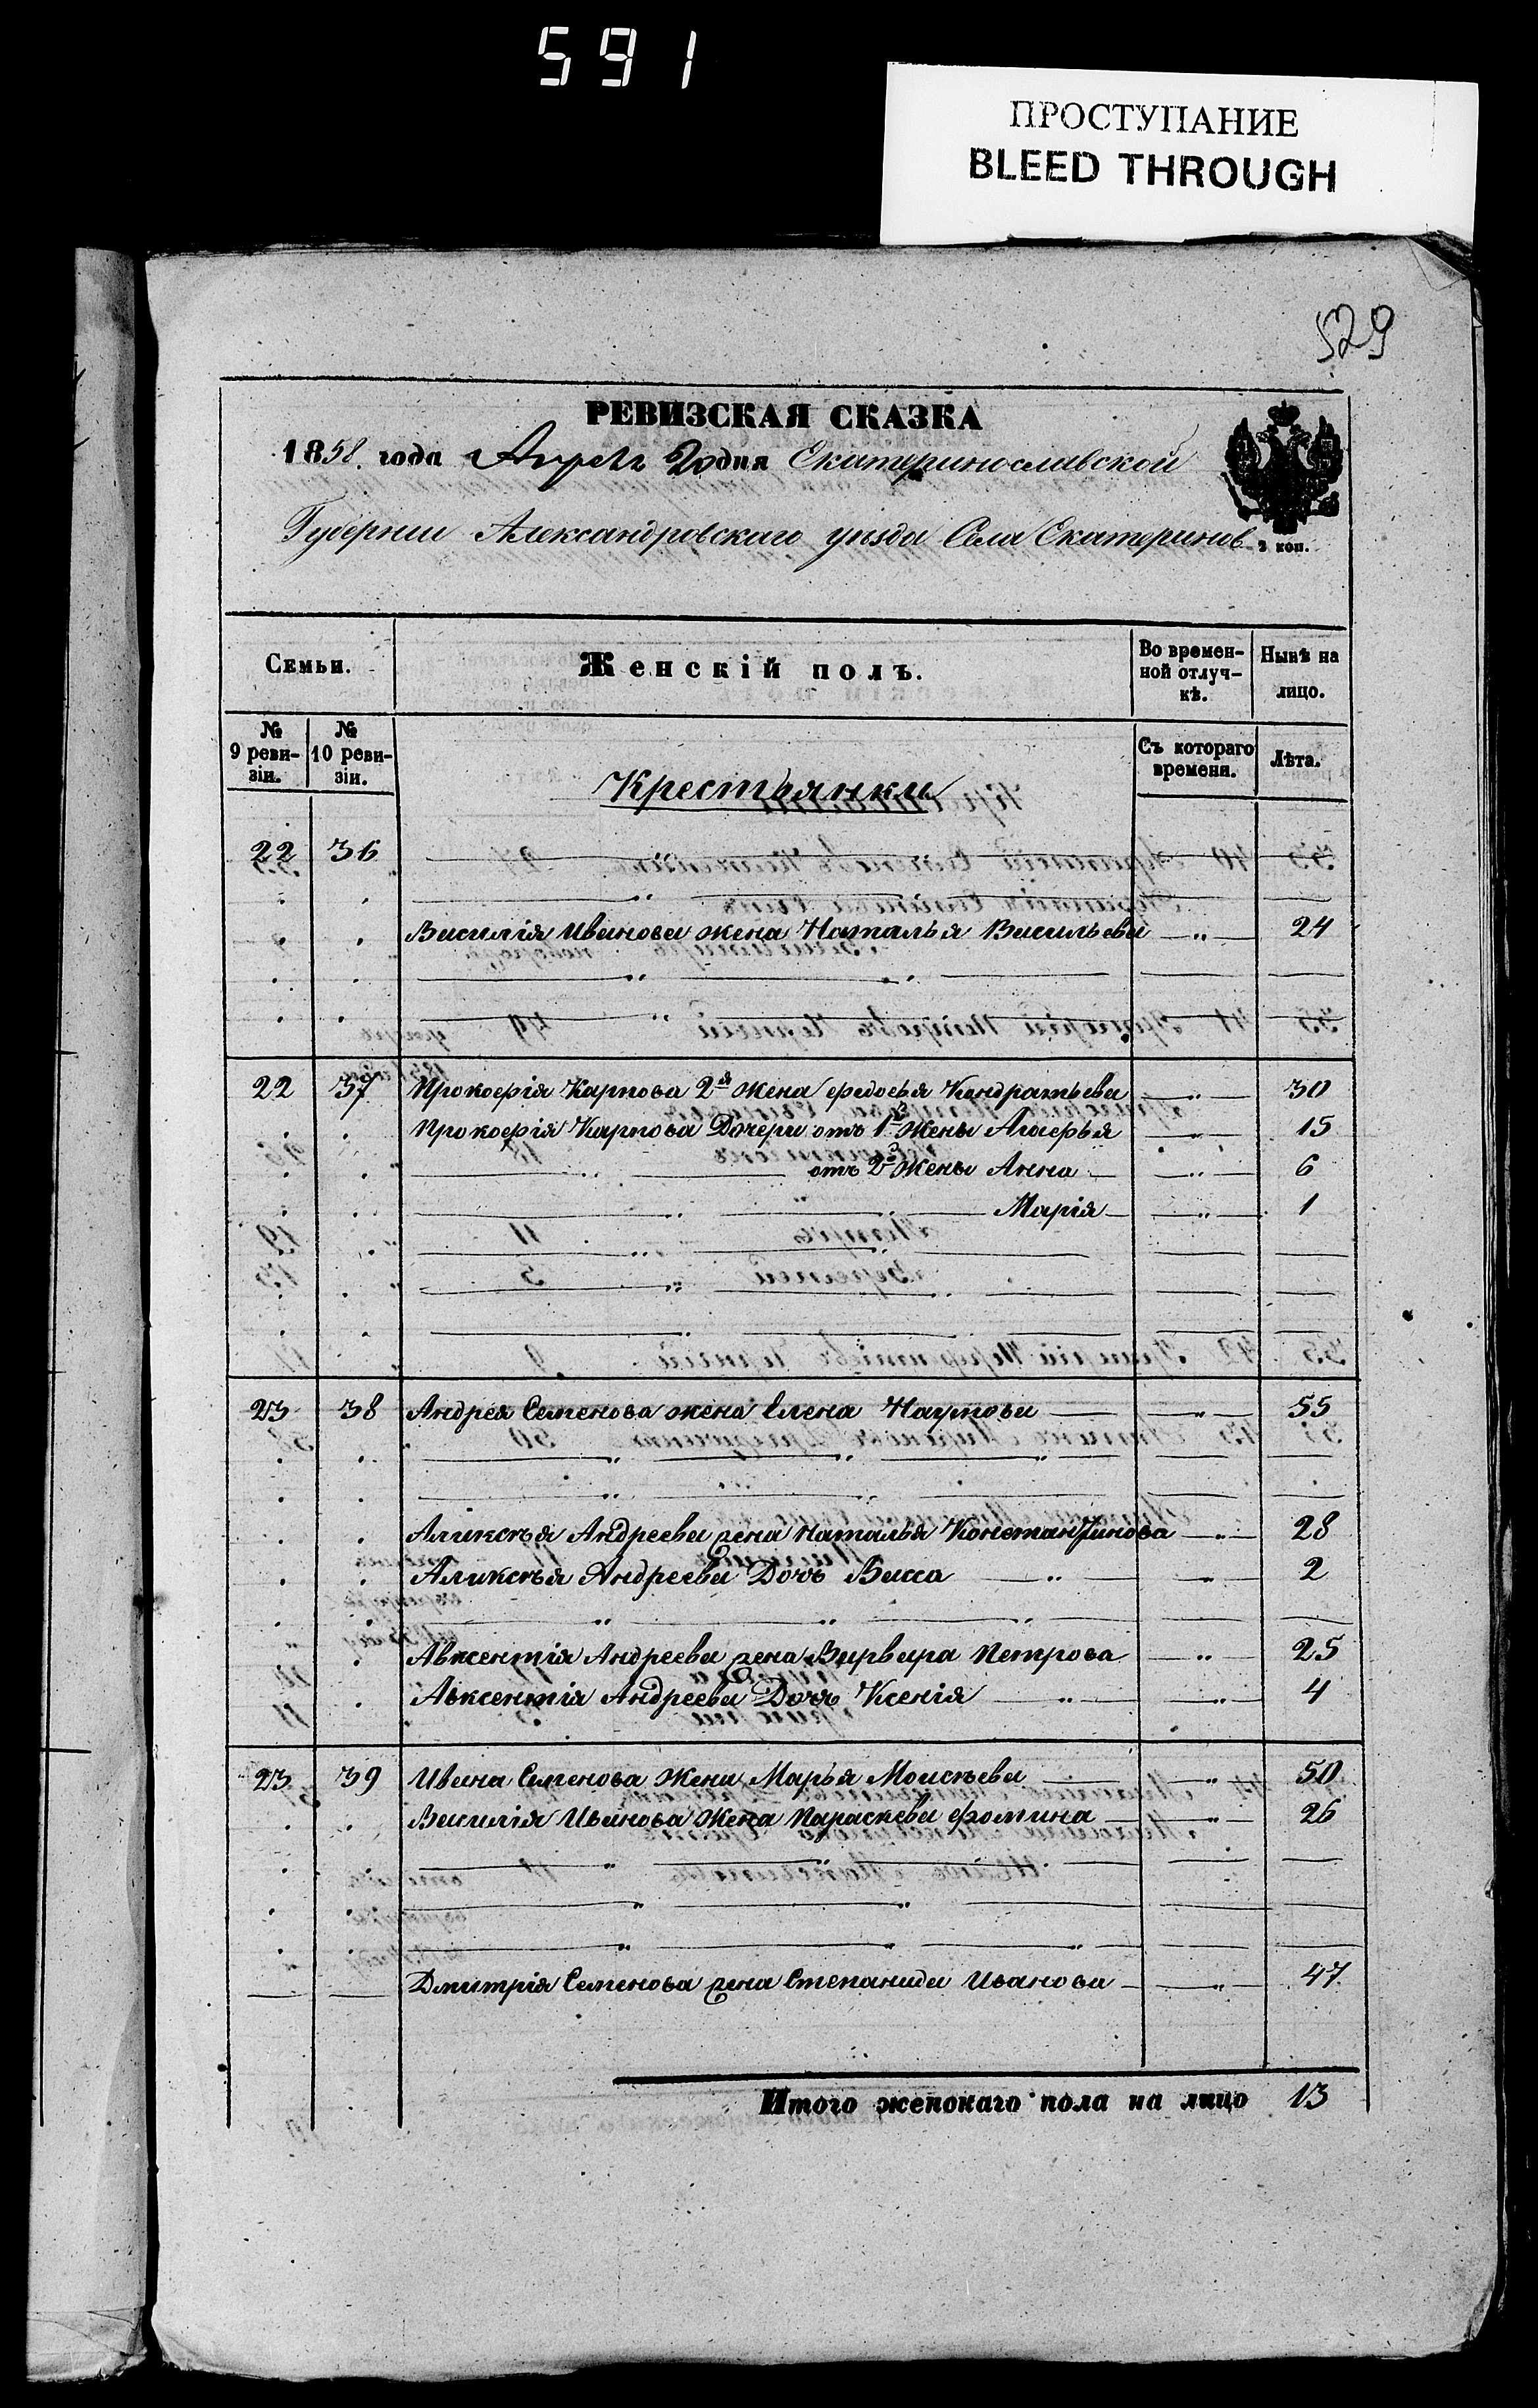 591
ПРОСТУПАНИЕ
BLEED THROUGH
529
РЕВИЗСКАЯ СКАЗКА
1858 года Апреля 20 дня Екатеринославской
Губернии Александровскаго уезда Села Екатеринов
2 коп.
Семьи. Женскій полъ. Во временной отлучкѣ. Нынѣ на лицо.
№ 9 ревизіи. № 10 ревизіи. Съ котораго времени. Лѣта.
Крестьянки
22 36
Василія Иванова жена Наталья Васильева 24
22 37 Прокофія Карпова 2я жена Федосья Кондратьева 30
Прокофія Карпова Дочери отъ 1й Жены 15
отъ 2й Жены Анна 6
Марія 1
23 38 Андрея Семенова жена Елена Наумова 55
Алексѣя Андреева жена Наталья Константинова 28
Алексѣя Андреева Дочь Васса 2
Авксентія Андреева жена Варвара Петрова 25
Авксентія Андреева Дочь Ксенія 4
23 39 Ивана Семенова Жена Марья Моисѣева 50
Василія Иванова Жена Параскева Фомина 26
Дмитрія Семенова жена Степанида Иванова 47
Итого женскаго пола на лицо 13